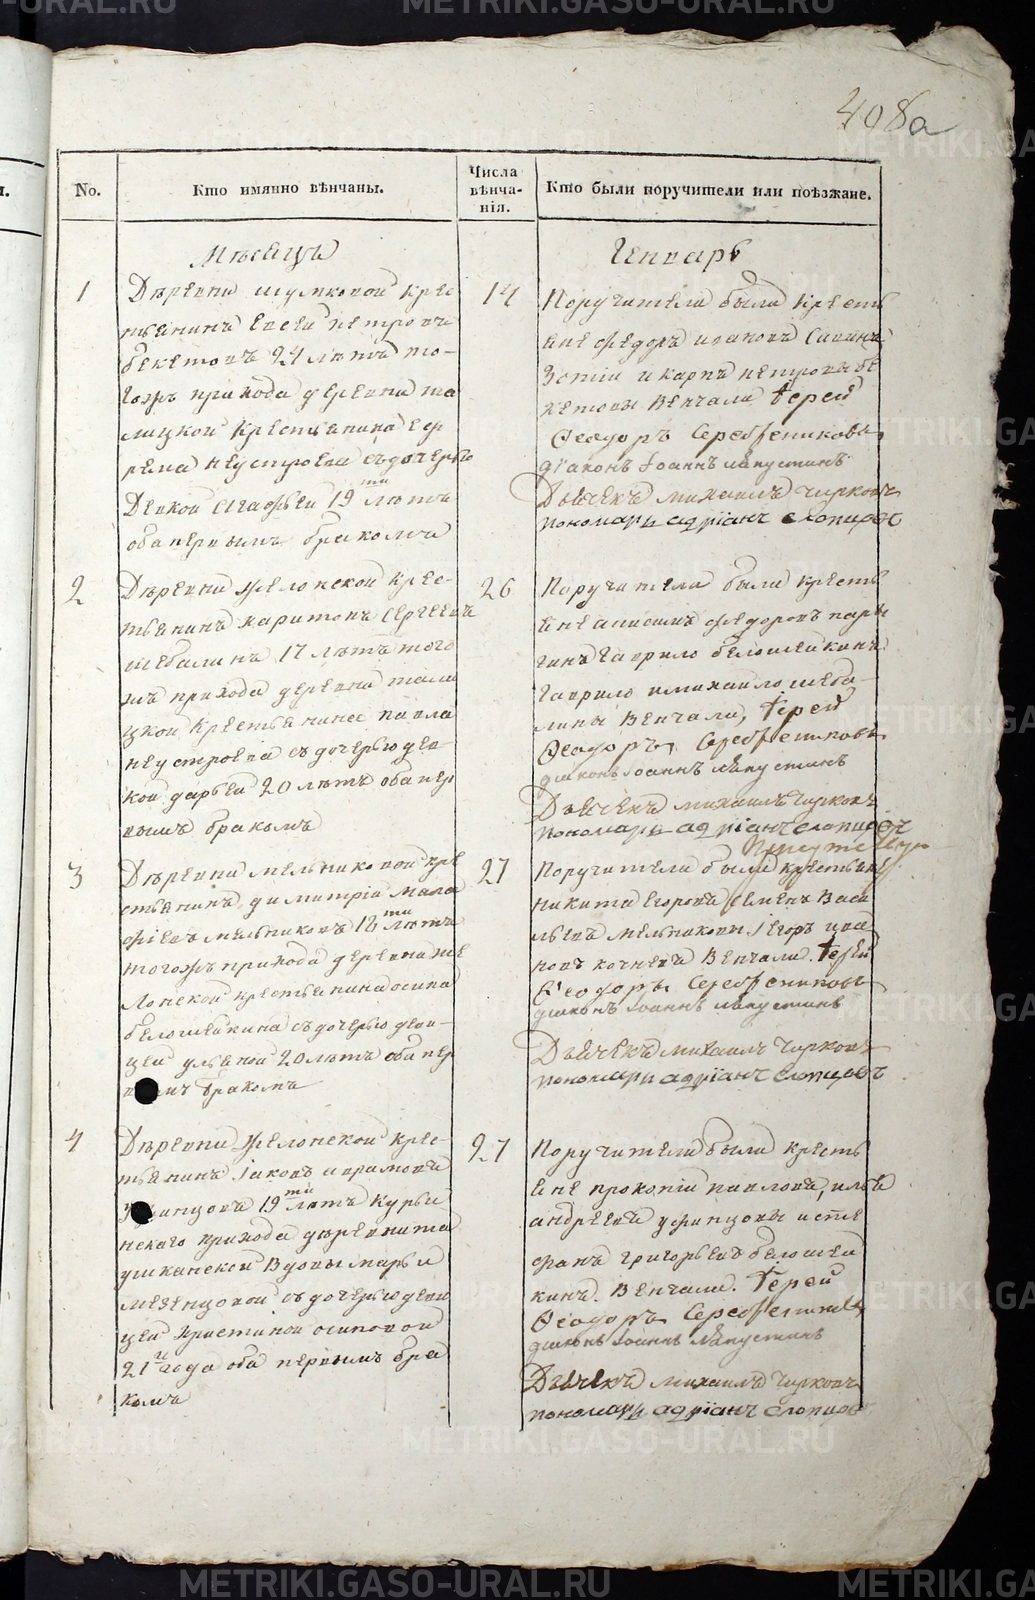 408а
No.
Кто имянно вѣнчаны.
Числа
вѣнча-
нія.
Кто были поручители или поѣзжане.
Мѣсяцъ
Генварь
1
Деревни Шумковой крес
тьянинъ Евсей Петровъ
Бекетовъ 24 лѣтъ то-
гожъ прихода деревни Та
лицкой крестьянина Еф
рема Неустроева съ дочерью
девкой Агафьей 19ти лѣтъ
оба первымъ бракомъ
14
Поручители были кресть
яне Федоръ Ивановъ Савинъ
Зотій и Карпъ Петровы Бе
кетовы Венчали Іерей
Феодоръ Серебрениковъ
діаконъ Іоаннъ Лапустинъ
Дьячекъ Михаилъ Чирковъ
пономарь Адріанъ Слопцовъ
2
Деревни Желонской крес-
тьянинъ Харитонъ Сергеевъ
Шебалинъ 17 лѣтъ того
жъ прихода деревни Тали
цкой крестьянина Павла
Неустроева съ дочерью дев
кой Дарьей 20 лѣтъ оба пер
вымъ бракомъ
26
Поручители были кресть
яне Анисимъ Федоровъ Пары
гинъ Гаврило Белошейкинъ
Гаврило и Михаило Шеба-
лины Венчали, Іерей
Феодоръ Серебрениковъ
діаконъ Іоаннъ Лапустинъ
Дьячекъ Михаилъ Чирковъ
пономарь Адріанъ Слопцовъ
3
Деревни Мельниковой кре
стьянинъ Димитрій Мала
фѣевъ Мельниковъ 18ти лѣтъ
тогожъ прихода деревни Же
лонской крестьянина Осипа
Белошейкина съ дочерью деви-
цей Ульяной 20 лѣтъ оба пер
вымъ бракомъ
27
Поручители были крестьяне
Никита Егоровъ Семенъ Васи
льевъ Мельниковы Іегоръ Ива
новъ Кочневъ Венчали. Іерей
Феодоръ Серебрениковъ
діаконъ Іоаннъ Лапустинъ
Дьячекъ Михаилъ Чирковъ
пономарь Адріанъ Слопцовъ
4
Деревни Желонской крес-
тьянинъ Іаковъ Аврамовъ
Уфинцовъ 19ти лѣтъ Курьи
нскаго прихода деревни Та
ушканской Вдовы Марьи
Мезенцовой съ дочерью деви
цей Христиной Осиповой
21го года оба первымъ бра
комъ
27
Поручители были кресть
яне Прокопій Павловъ, Илья
Андреевъ Уфинцовы и Сте
фанъ Григорьевъ Белошей
кинъ. Венчали. Іерей
Феодоръ Серебрениковъ
діаконъ Іоаннъ Лапустинъ
Дьячекъ Михаилъ Чирковъ
пономарь Адріанъ Слопцовъ
METRIKI.GASO-URAL.RU